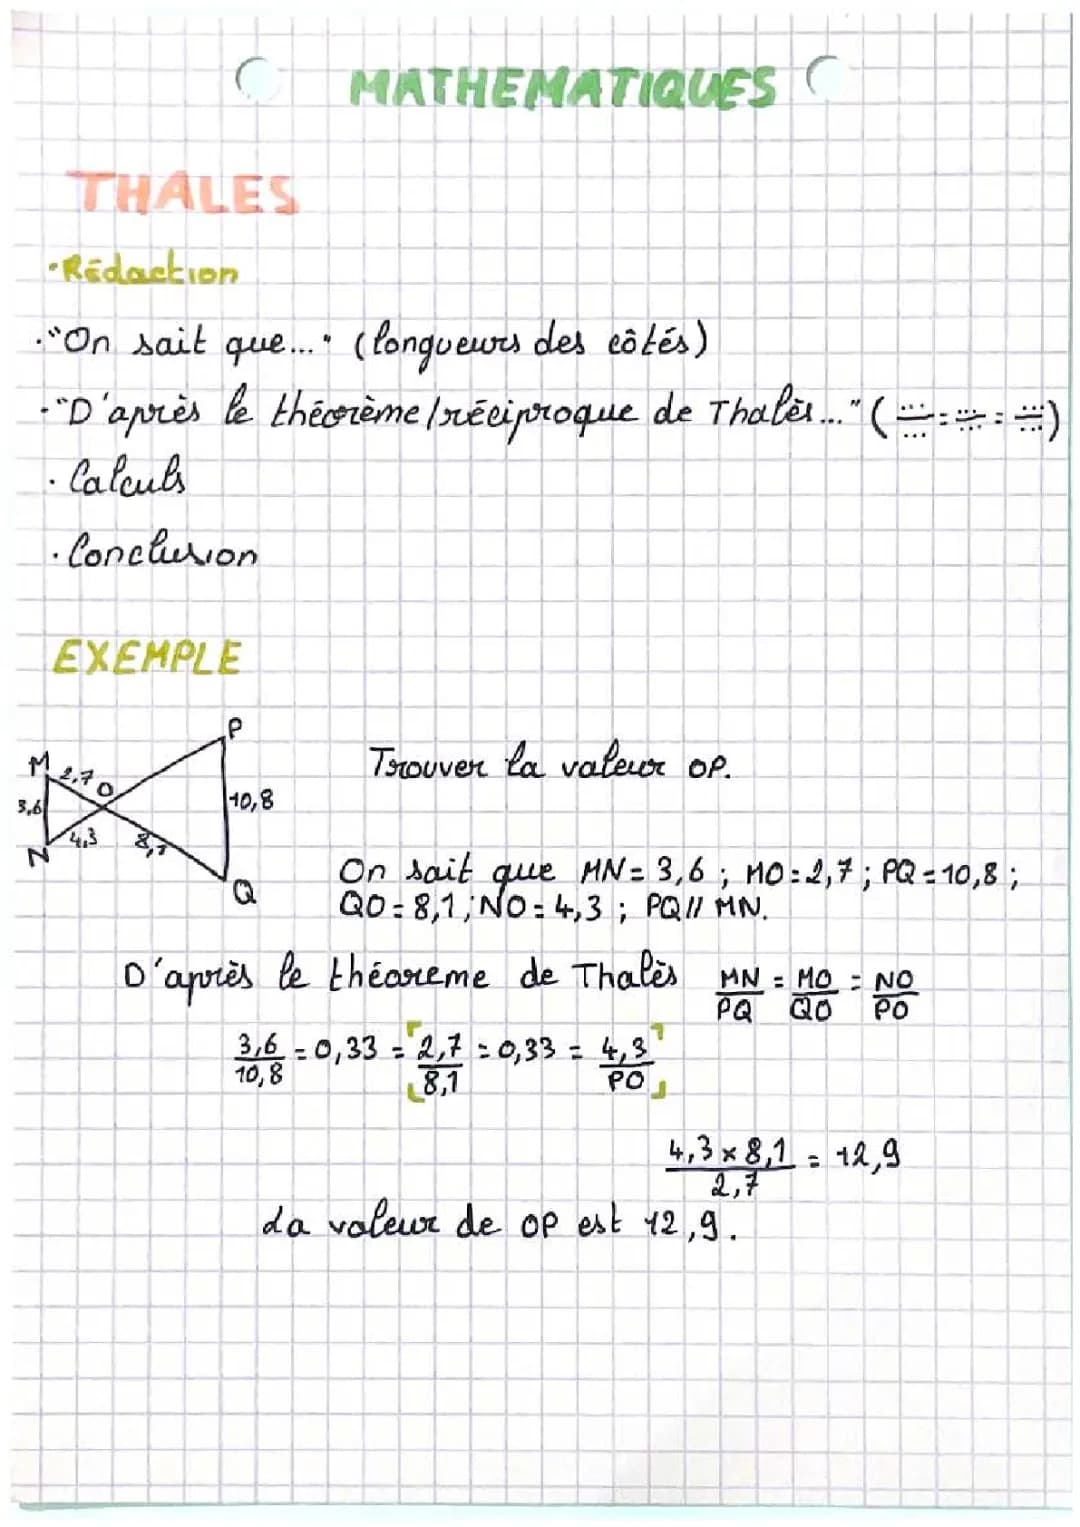 MATHEMATIQUES
THALES
• Rédaction
• "On sait que..." (longueurs des côtés)
• "D'après le théorème/réciproque de Thalès..." (.../... = .../... = .../...)
• Calculs
• Conclusion
EXEMPLE
P
M 2,7 O
3,6 10,8
N 4,3 8,1
Q
Trouver la valeur OP.
On sait que MN = 3,6 ; MO = 2,7 ; PQ = 10,8 ;
QO = 8,1 ; NO = 4,3 ; PQ // MN.
D'après le théoreme de Thalès MN/PQ = MO/QO = NO/PO
3,6/10,8 = 0,33 = 2,7/8,1 = 0,33 = 4,3/PO
4,3 × 8,1/2,7 = 12,9
La valeur de OP est 12,9.